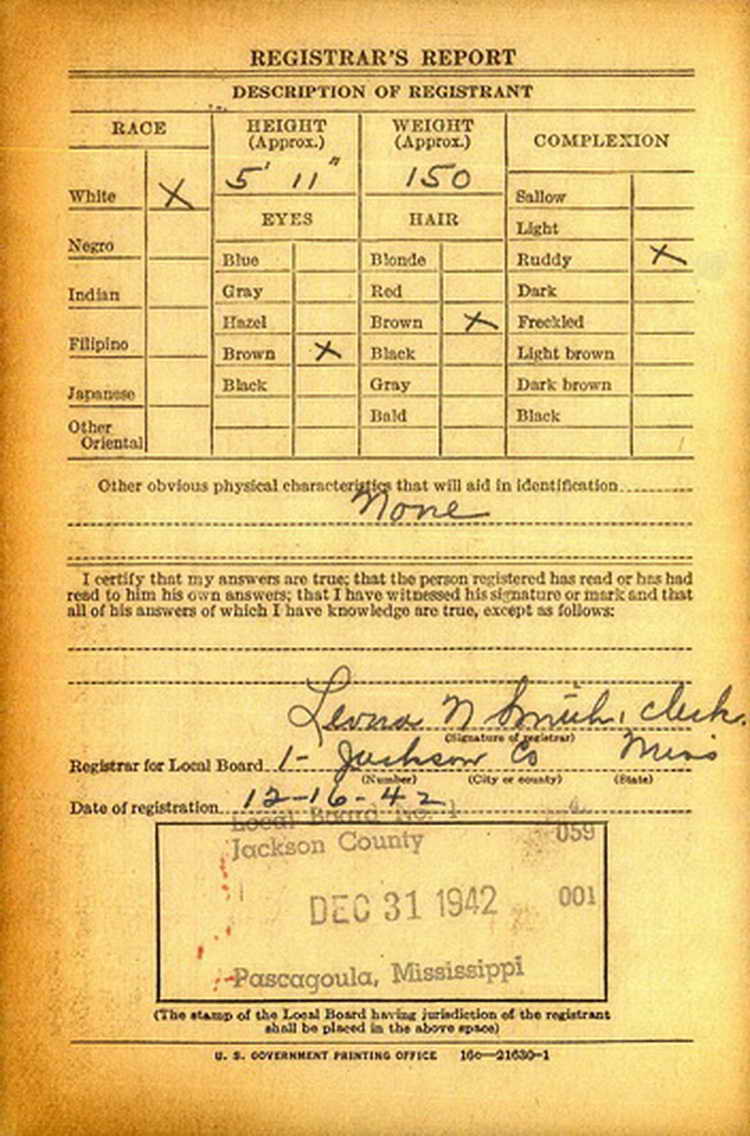 REGISTRAR'S REPORT
DESCRIPTION OF REGISTRANT
RACE
HEIGHT
(Approx.)
WEIGHT
(Approx.)
COMPLEXION
5' 11"
150
White X
Sallow
EYES
HAIR
Light
Negro
Blue
Blonde
Ruddy X
Indian
Gray
Red
Dark
Hazel
Brown X
Freckled
Filipino
Brown X
Black
Light brown
Japanese
Black
Gray
Dark brown
Other
Oriental
Bald
Black
Other obvious physical characteristics that will aid in identification
None
I certify that my answers are true; that the person registered has read or has had
read to him his own answers; that I have witnessed his signature or mark and that
all of his answers of which I have knowledge are true, except as follows:
Leona N Smith, clerk.
(Signature of registrar)
Registrar for Local Board 1- Jackson Co Miss
(Number) (City or county) (State)
Date of registration 12-16-42
Local Board No. 1
059
Jackson County
DEC 31 1942 001
Pascagoula, Mississippi
(The stamp of the Local Board having jurisdiction of the registrant
shall be placed in the above space)
U. S. GOVERNMENT PRINTING OFFICE 16c—21630-1